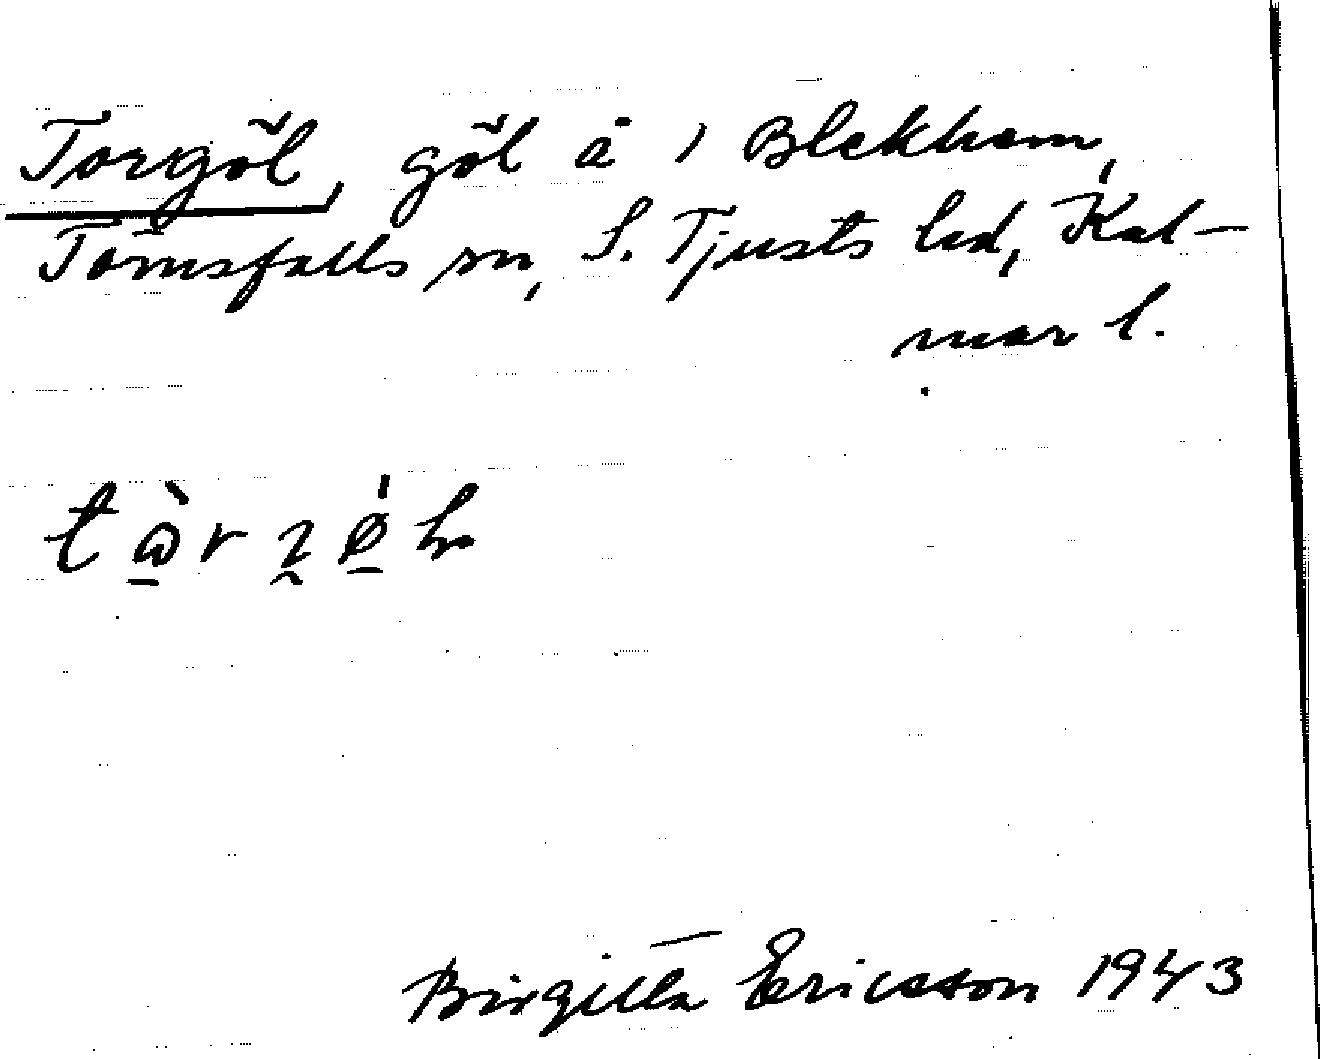 Torgöl, göl å 1 Blekhem,
Törnsfalls sn, S. Tjusts hd, Kal-
mar l.
Birgitta Ericsson 1943